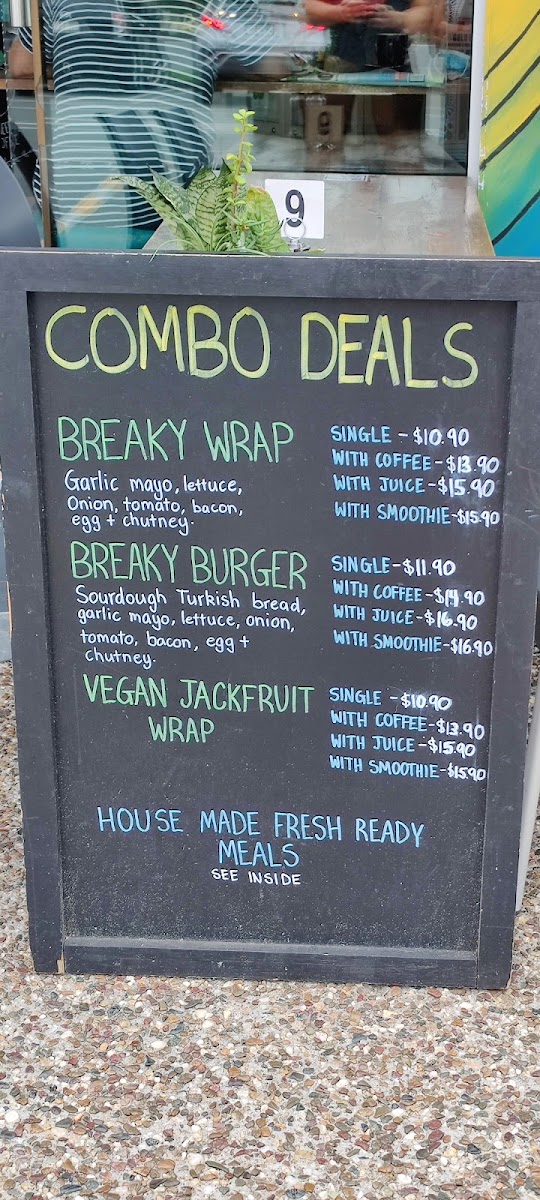 9
COMBO DEALS
BREAKY WRAP
Garlic mayo, lettuce,
Onion, tomato, bacon,
egg + chutney.
SINGLE - $10.90
WITH COFFEE - $13.90
WITH JUICE - $15.90
WITH SMOOTHIE - $15.90
BREAKY BURGER
Sourdough Turkish bread,
garlic mayo, lettuce, onion,
tomato, bacon, egg +
chutney.
SINGLE - $11.90
WITH COFFEE - $14.90
WITH JUICE - $16.90
WITH SMOOTHIE - $16.90
VEGAN JACKFRUIT
WRAP
SINGLE - $10.90
WITH COFFEE - $13.90
WITH JUICE - $15.90
WITH SMOOTHIE - $15.90
HOUSE MADE FRESH READY
MEALS
SEE INSIDE